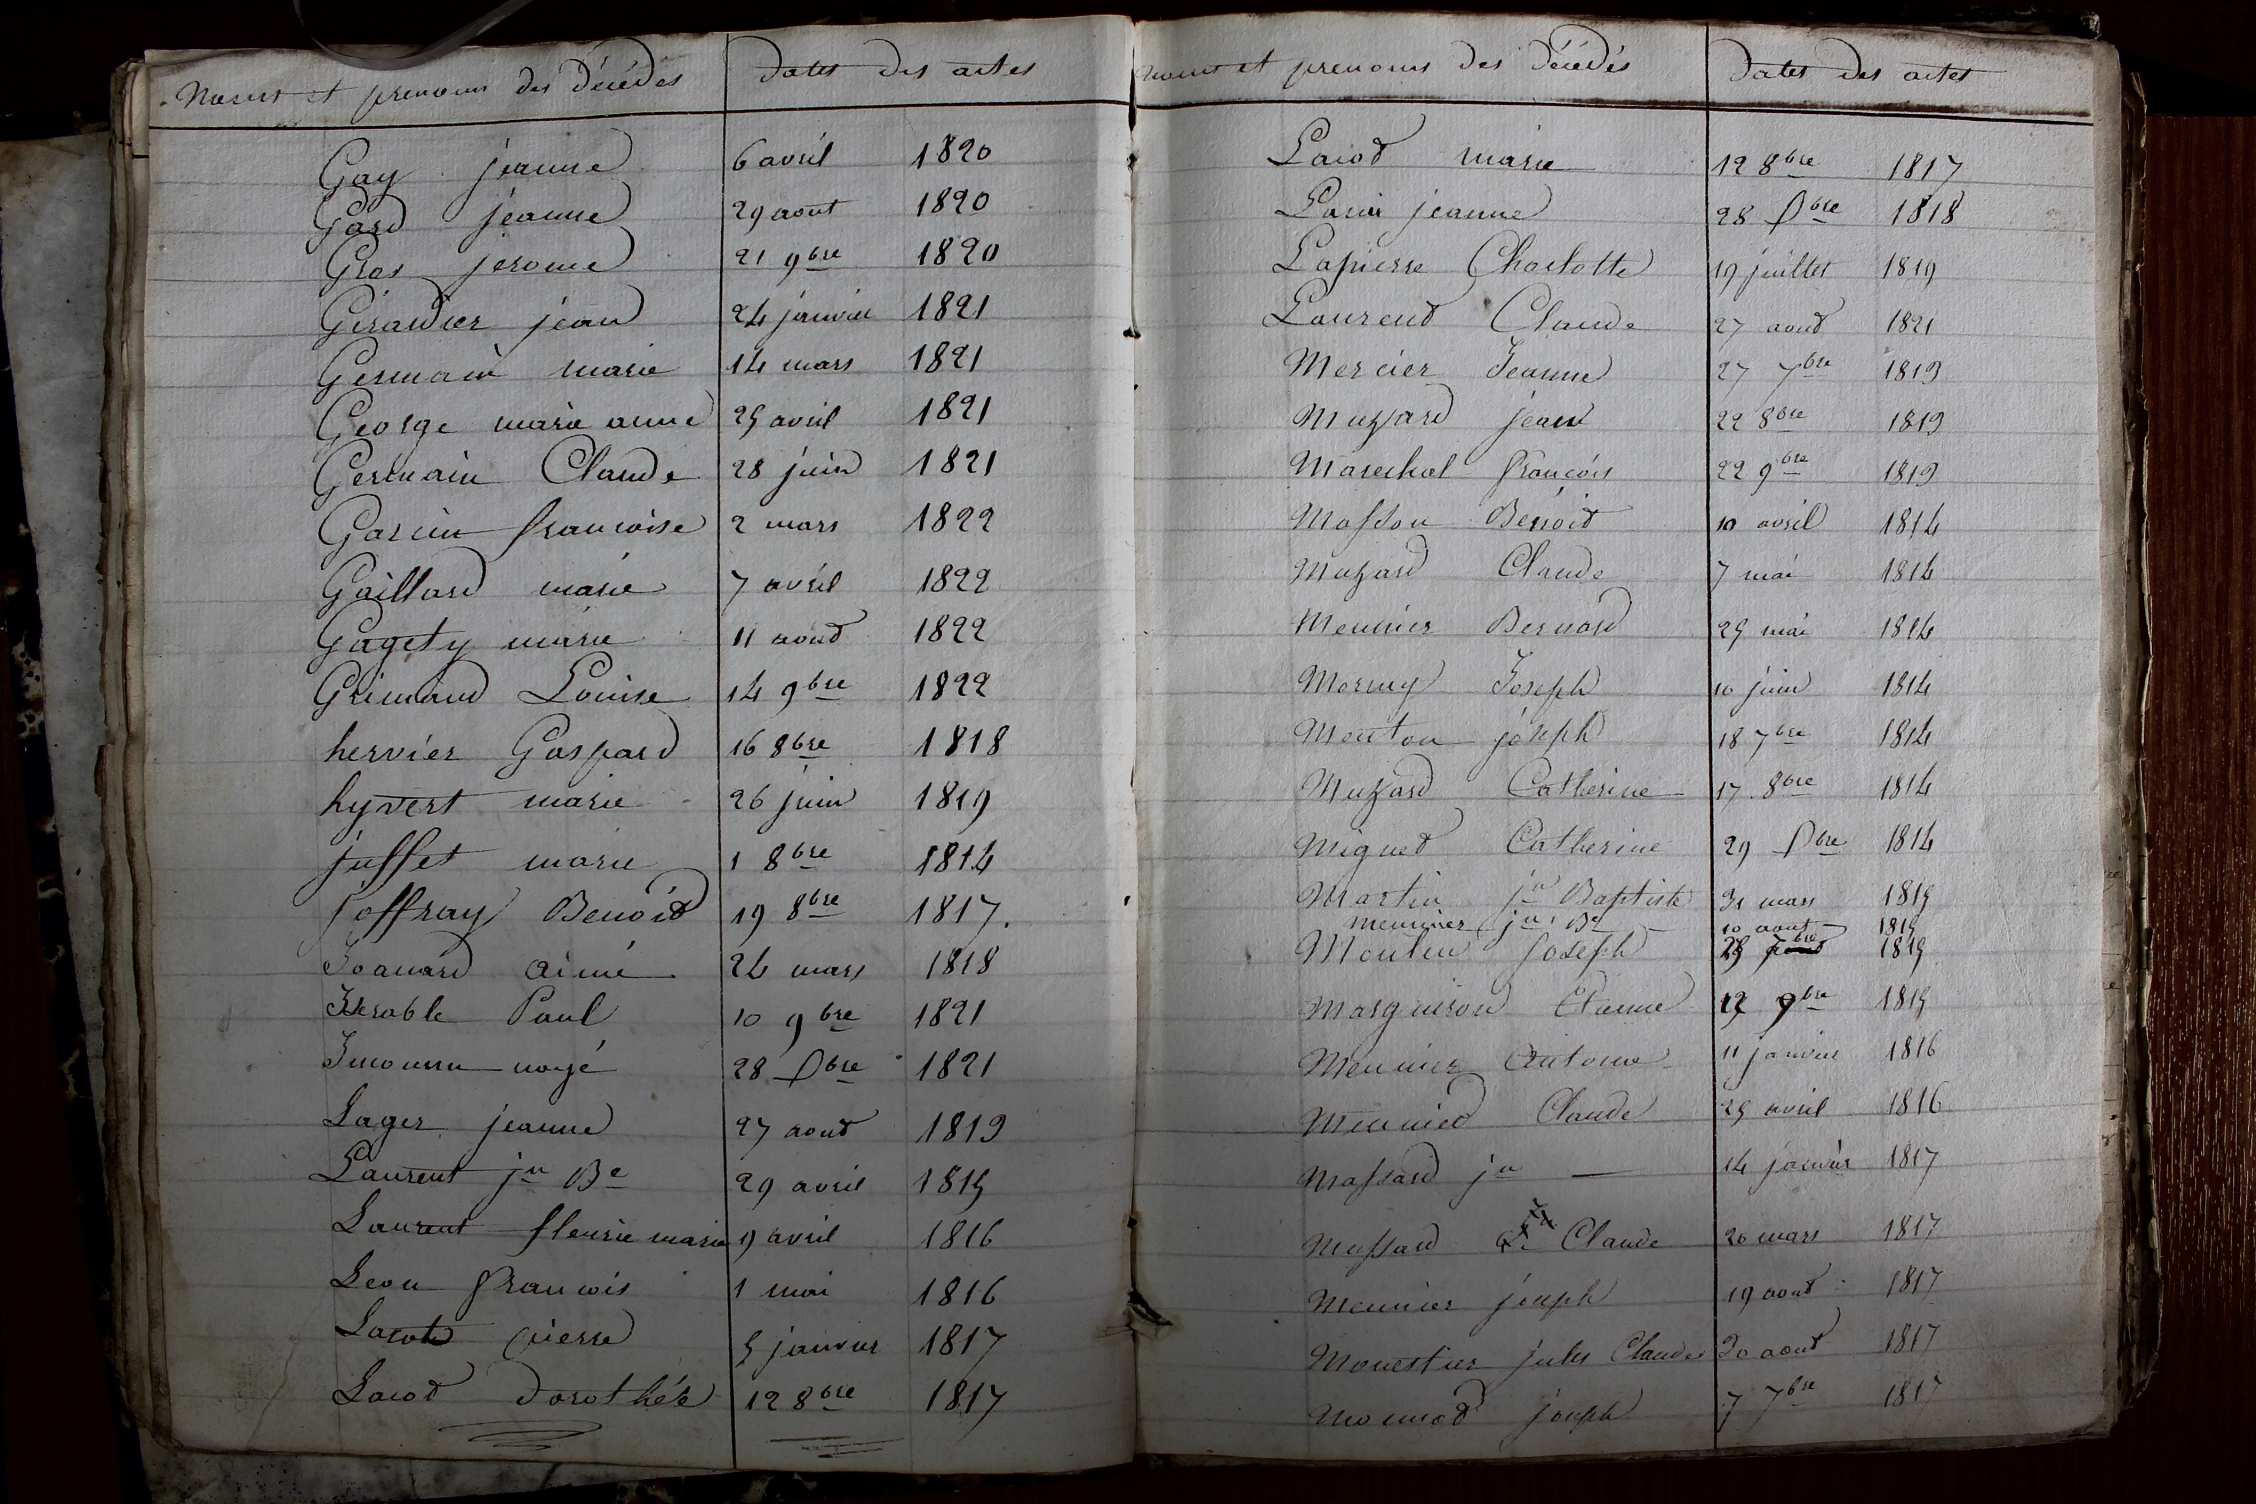 Noms et prenoms des décédés dates des actes
Gay jeanne 6 avril 1820
Gard jeanne 29 aout 1820
Gros jerome 21 9bre 1820
Girardier jean 24 janvier 1821
Germain marie 14 mars 1821
George marie anne 25 avril 1821
Germain Claude 28 juin 1821
Garcin francoise 2 mars 1822
Gaillard marie 7 avril 1822
Gagety marie 11 aoud 1822
Grimaud Louise 14 9bre 1822
hervier Gaspard 16 8bre 1818
hyvert marie 26 juin 1819
juffet marie 1 8bre 1814
joffray Benoid 19 8bre 1817.
Joanard aimé 24 mars 1818
Iserable Paul 10 9bre 1821
Inconnu noyé 28 Xbre 1821
Lager jeanne 27 aoud 1819
Laurent jn Be 29 avril 1815
Laurent fleurie marie 9 avril 1816
Leon francois 1 mai 1816
Lacote pierre 5 janvier 1817
Lacod dorothée 12 8bre 1817
noms et prenoms des décédés dates des actes
Lacod marie 12 8bre 1817
jeanne 28 Xbre 1818
Lapierre Charlotte 19 juillet 1819
Laurend Claude 27 aoud 1821
Mercier Jeanne 27 7bre 1819
Muzard jean 22 8bre 1819
Marechal francois 22 9bre 1819
Masson Benoid 10 avril 1814
Muzard Claude 7 mai 1814
Meunier Bernard 25 mai 1814
Mornay Joseph 10 juin 1814
Menton joseph 18 7bre 1814
Muzard Catherine 17 8bre 1814
Migned Catherine 29 Xbre 1814
Martin jn Baptiste 31 mars 1815
meunier jn Be 10 aout 1815
Moulin Joseph 25 7bre 1815
Marguiron Etienne 12 9bre 1815
Meunier Antoine 11 janvier 1816
Meunied Claude 25 avril 1816
Massard jn 14 janvier 1817
Massard Claude 20 mars 1817
Meunier joseph 19 aoud 1817
Monestier jules Claude 30 aoud 1817
Monnod joseph 7 7bre 1817